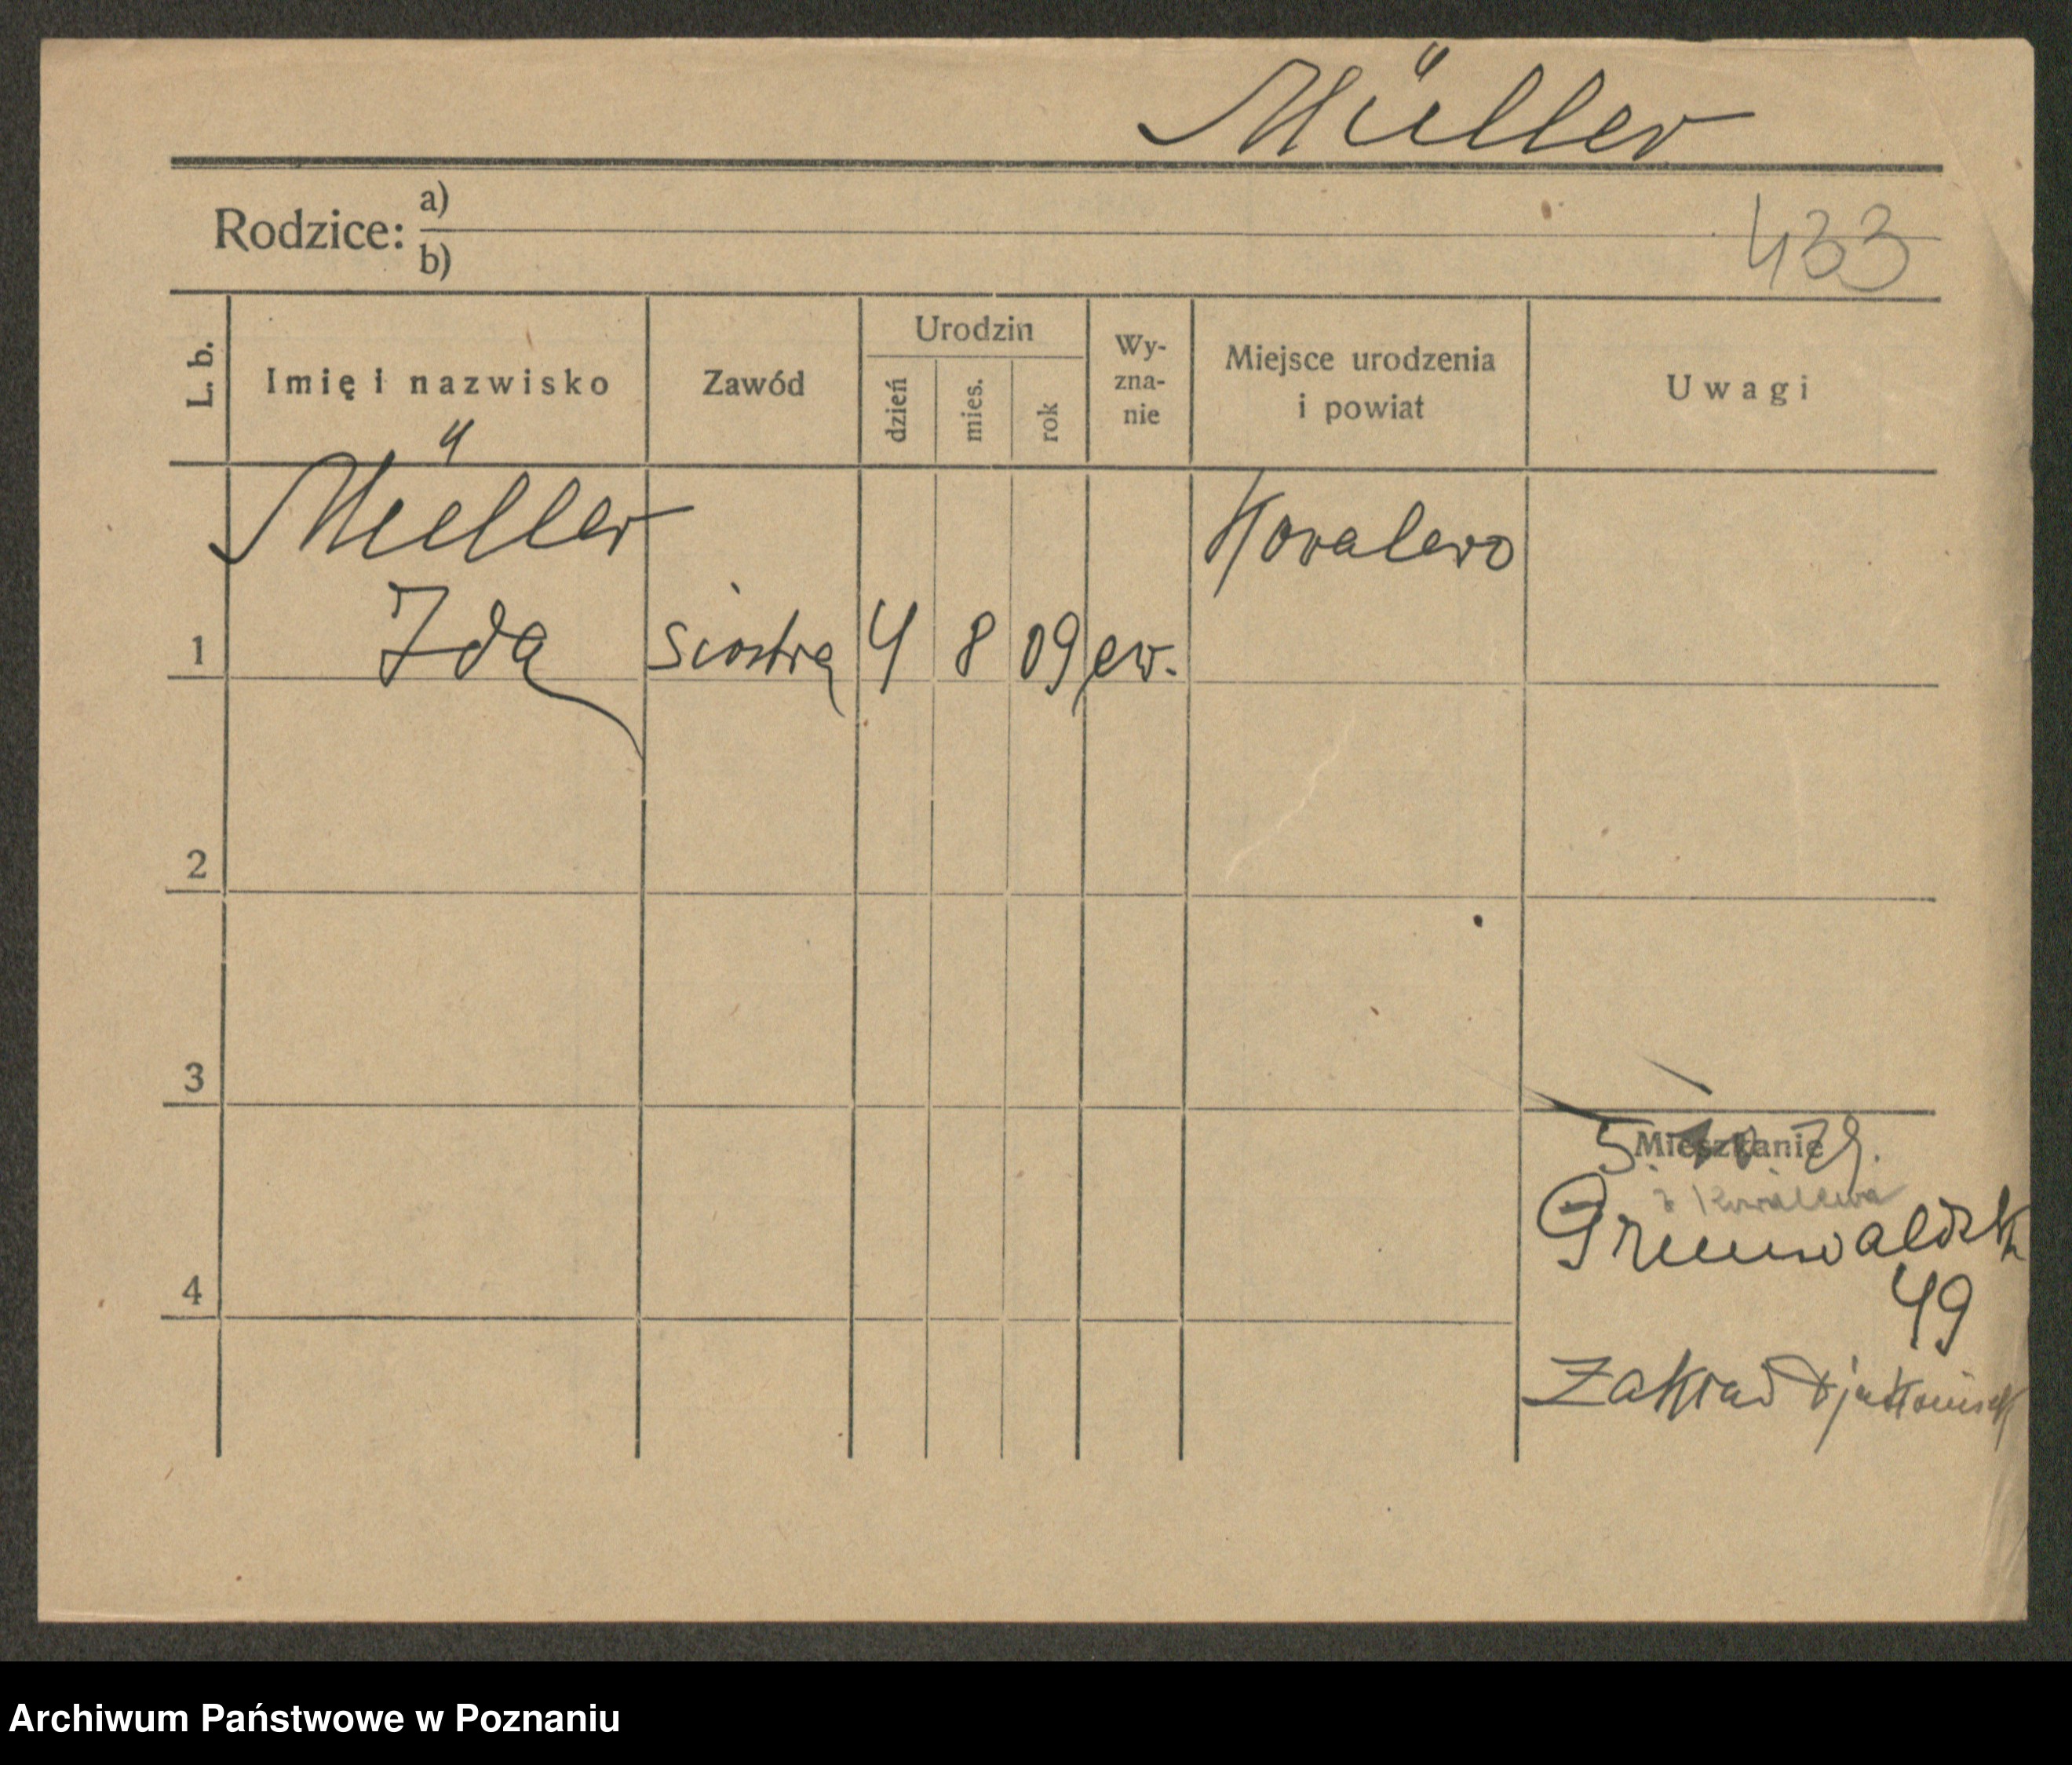 Müller
Rodzice: a)
b)
433
L. b.
Imię i nazwisko
Zawód
Urodzin
dzień
mies.
rok
Wy-
zna-
nie
Miejsce urodzenia
i powiat
Uwagi
Müller
Kovalevo
1 Ida siostra 4 8 09 ew.
2
3
Mieszkanie
z Kowalewa
Grunwaldzk
49
4
Zakład
Archiwum Państwowe w Poznaniu